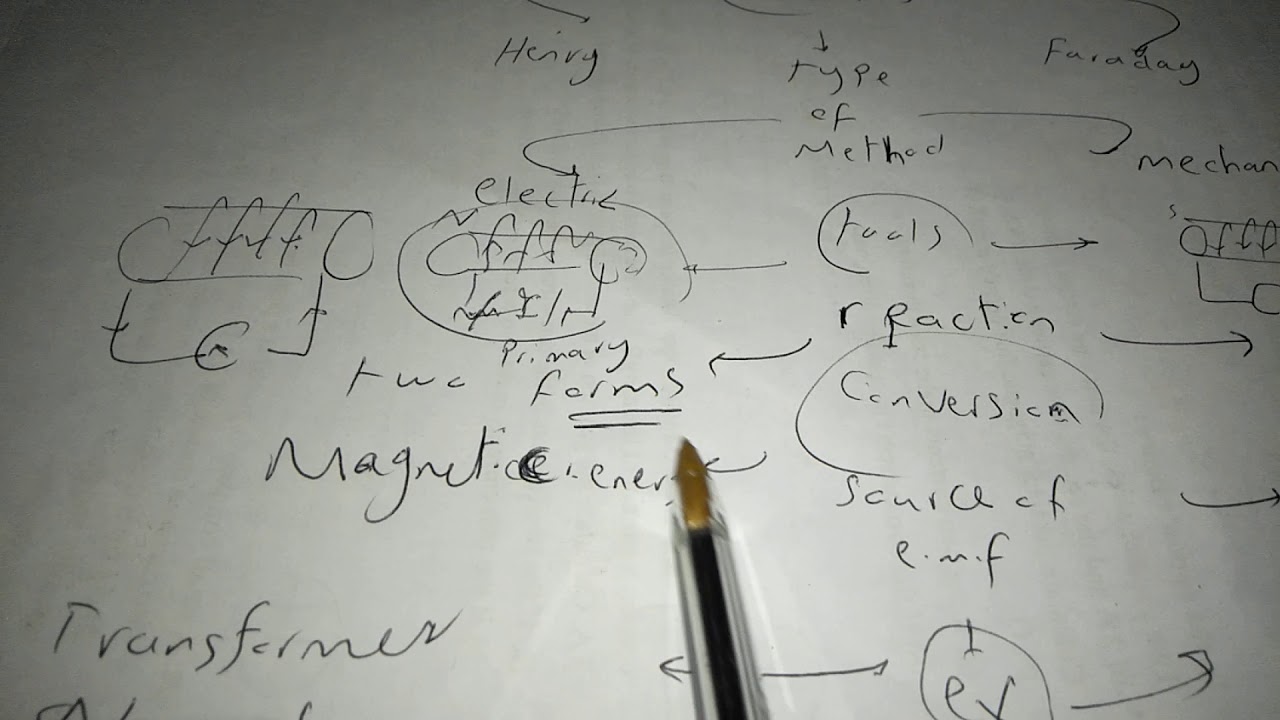 Henry
type
Faraday
of
Method
mechan
electric
N
S
tools
reaction
Primary
two forms
Conversion
Magnetic energ
source of
e.m.f
Transformer
ex